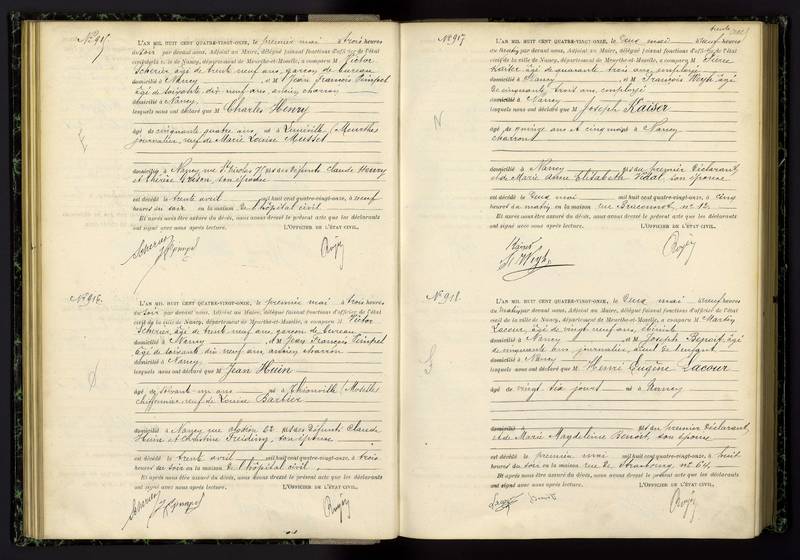 No 915
L'AN MIL HUIT CENT QUATRE-VINGT-ONZE, le premier mai à trois heures
du soir par devant nous, Adjoint au Maire, délégué faisant fonctions d'officier de l'état
civil de la ville de Nancy, département de Meurthe-et-Moselle, a comparu M Victor
Scherier, âgé de trente neuf ans, garçon de bureau
domicilié à Nancy et M Jean François
âgé de soixante dix neuf ans, ancien charron
domicilié à Nancy,
lesquels nous ont déclaré que M Charles Henry
âgé de cinquante quatre ans, né à Lunéville (Meurthe)
journalier, veuf de Marie Louise Musset
domicilié à Nancy rue St Nicolas fils des défunts Claude Henry
et son épouse
est décédé le trente avril mil huit cent quatre-vingt-onze, à neuf
heures du soir en la maison de l'hôpital civil
Et après nous être assuré du décès, nous avons dressé le présent acte que les déclarants
ont signé avec nous après lecture. L'OFFICIER DE L'ÉTAT CIVIL,
No 916.
L'AN MIL HUIT CENT QUATRE-VINGT-ONZE, le premier mai à trois heures
du soir par devant nous, Adjoint au Maire, délégué faisant fonctions d'officier de l'état
civil de la ville de Nancy, département de Meurthe-et-Moselle, a comparu M Victor
Scherier, âgé de trente neuf ans, garçon de bureau
domicilié à Nancy et M Jean François
âgé de soixante dix neuf ans, ancien charron
domicilié à Nancy,
lesquels nous ont déclaré que M Jean Huin
âgé de soixante un ans né à Thionville (Moselle)
chiffonnier, veuf de Louise Barbier
domicilié à Nancy rue Clodion 62 fils des défunts Claude
Huin et Christine son épouse
est décédé le trente avril mil huit cent quatre-vingt-onze, à trois
heures du soir en la maison de l'hôpital civil
Et après nous être assuré du décès, nous avons dressé le présent acte que les déclarants
ont signé avec nous après lecture. L'OFFICIER DE L'ÉTAT CIVIL,
No 917
L'AN MIL HUIT CENT QUATRE-VINGT-ONZE, le deux mai à neuf heures
du matin par devant nous, Adjoint au Maire, délégué faisant fonctions d'officier de l'état
civil de la ville de Nancy, département de Meurthe-et-Moselle, a comparu M Pierre
Kaiser âgé de quarante trois ans, employé
domicilié à Nancy et M François Weyh âgé
de cinquante trois ans, employé
domicilié à Nancy
lesquels nous ont déclaré que M Joseph Kaiser
âgé de quinze ans et cinq mois né à Nancy
charron
domicilié à Nancy fils du premier déclarant
et de Marie Anne Elisabeth Vidal, son épouse
est décédé le deux mai mil huit cent quatre-vingt-onze, à cinq
heures du matin en la maison rue Braconnot, no 12.
Et après nous être assuré du décès, nous avons dressé le présent acte que les déclarants
ont signé avec nous après lecture. L'OFFICIER DE L'ÉTAT CIVIL,
No 918.
L'AN MIL HUIT CENT QUATRE-VINGT-ONZE, le deux mai à neuf heures
du matin par devant nous, Adjoint au Maire, délégué faisant fonctions d'officier de l'état
civil de la ville de Nancy, département de Meurthe-et-Moselle, a comparu M Martin
Lacour, âgé de vingt neuf ans, ébéniste
domicilié à Nancy et M Joseph Benoit, âgé
de cinquante ans, journalier, aïeul de l'enfant
domicilié à Nancy
lesquels nous ont déclaré que M Henri Eugène Lacour
âgé de vingt six jours né à Nancy
domicilié à fils du premier déclarant
et de Marie Magdeleine Benoit, son épouse
est décédé le premier mai mil huit cent quatre-vingt-onze, à huit
heures du soir en la maison rue de Strasbourg, no 64.
Et après nous être assuré du décès, nous avons dressé le présent acte que les déclarants
ont signé avec nous après lecture. L'OFFICIER DE L'ÉTAT CIVIL,